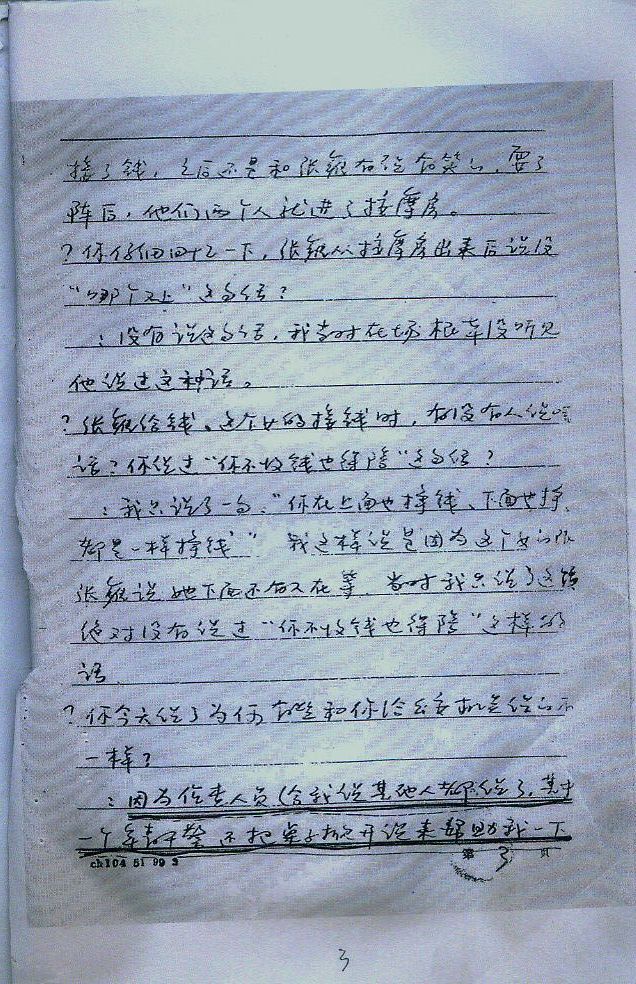 接了钱，之后还是和张毅有说有笑的，耍了
阵后，他们两个人就进了按摩房。
？你仔细回忆一下，张毅从按摩房出来后说没
“哪个又上”这句话？
：没有说这句话，我当时在场根本没听见
他说过这种话。
？张毅给钱、这个女的接钱时，有没有人说
话？你说过“你不收钱也得陪”这句话？
：我只说了一句，“你在上面也挣钱、下面也挣，
都是一样挣钱” 我这样说是因为这个女的
张毅说她下面还有人在等，当时我只说了这
绝对没有说过“你不收钱也得陪”这样的
话。
？你今天说了为何和你给公安机关说的不
一样？
：因为侦查人员给我说其他人都说了，其中
一个还把说来帮助我一下
ch104 51 99 3
第 3 页
3